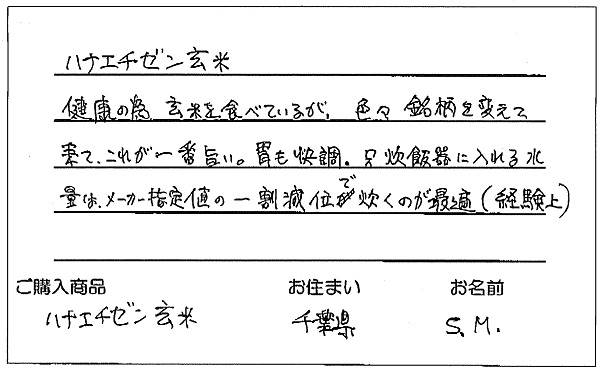 ハナエチゼン玄米
健康の為 玄米を食べているが、色々銘柄を変えて
来て、これが一番旨い。胃も快調。只炊飯器に入れる水
量は、メーカー指定値の一割減位で炊くのが最適(経験上)
ご購入商品 お住まい お名前
ハナエチゼン玄米 千葉県 S.M.